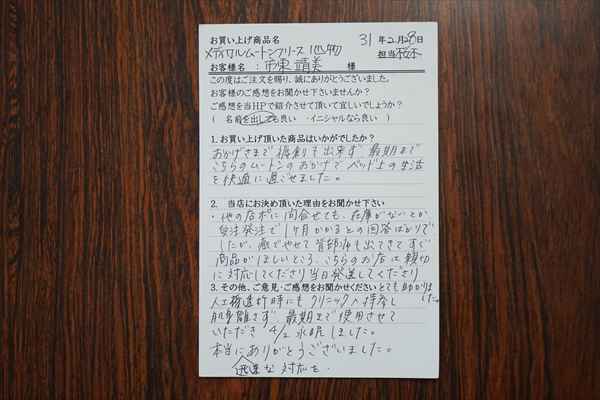 お買い上げ商品名 31年2月28日
メディカルムートンフリース 他物 担当
お客様名 : 市東 靖美 様
この度はご注文を賜り、誠にありがとうございました。
お客様のご感想をお聞かせ下さいませんか？
ご感想を当HPで紹介させて頂いて宜しいでしょうか？
（ 名前を出しても良い ・イニシャルなら良い ）
1. お買い上げ頂いた商品はいかがでしたか？
おかげさまで 褥創も出来ず 最期まで
こちらのムートンのおかげで ベッド上の生活
を快適に過ごせました。
2. 当店にお決め頂いた理由をお聞かせ下さい
・他の店舗に問合せても、在庫がないとか
受注発注で1ヶ月かかるとの回答ばかりで
したが、癌でやせて 背部痛も出てきて すぐ
商品がほしいところ、こちらのお店は親切
に対応してくださり当日発送してくださり
3. その他、ご意見・ご感想をお聞かせください とても助かりま
した。
人工透析時にも クリニックへ持参し
肌身離さず 最期まで使用させて
いただき 4/2 永眠しました。
本当にありがとうございました。
迅速な対応を・